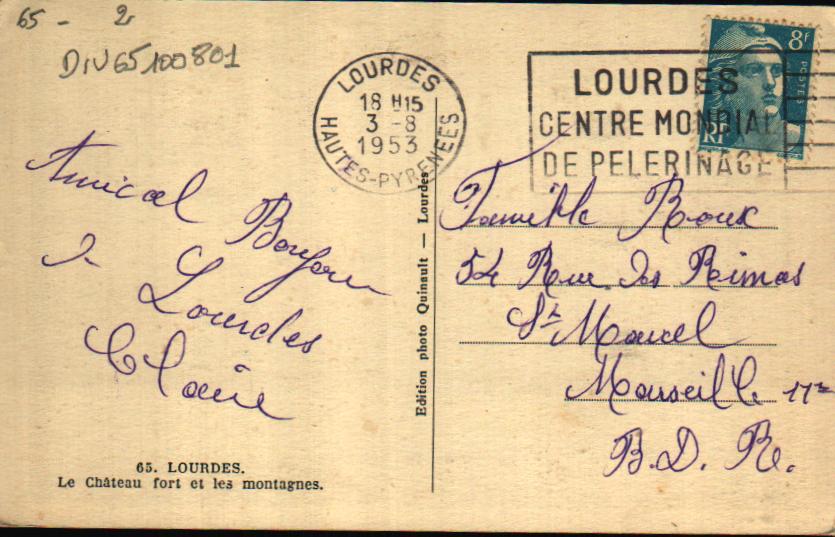 65 - 2
DIV65100801
LOURDES
18 H15
3 -8
1953
HAUTES-PYRENEES
LOURDES
CENTRE MONDIAL
DE PELERINAGE
8f
POSTES
RF
Amical Bonjour
de Lourdes
Claire
65. LOURDES.
Le Château fort et les montagnes.
Edition photo Quinault — Lourdes
Famille Roux
54 Rue des Rimas
St Marcel
Marseille 11e
B.D. R.